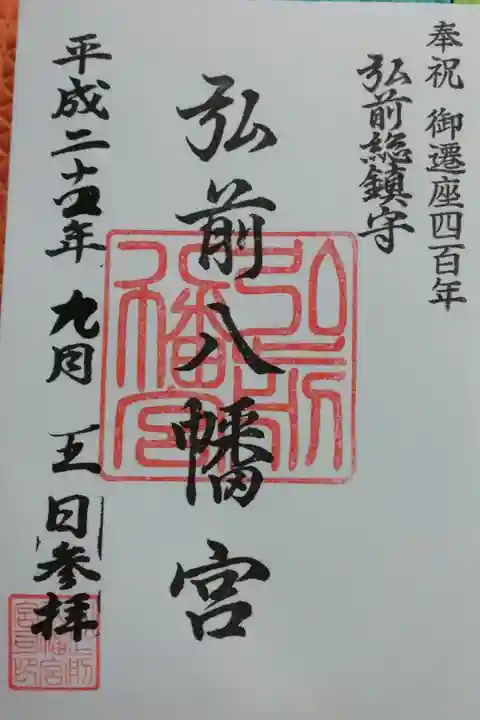 奉祝 御遷座四百年
弘前総鎮守
弘前八幡宮
弘前八幡宮
平成二十四年 九月 日参拝